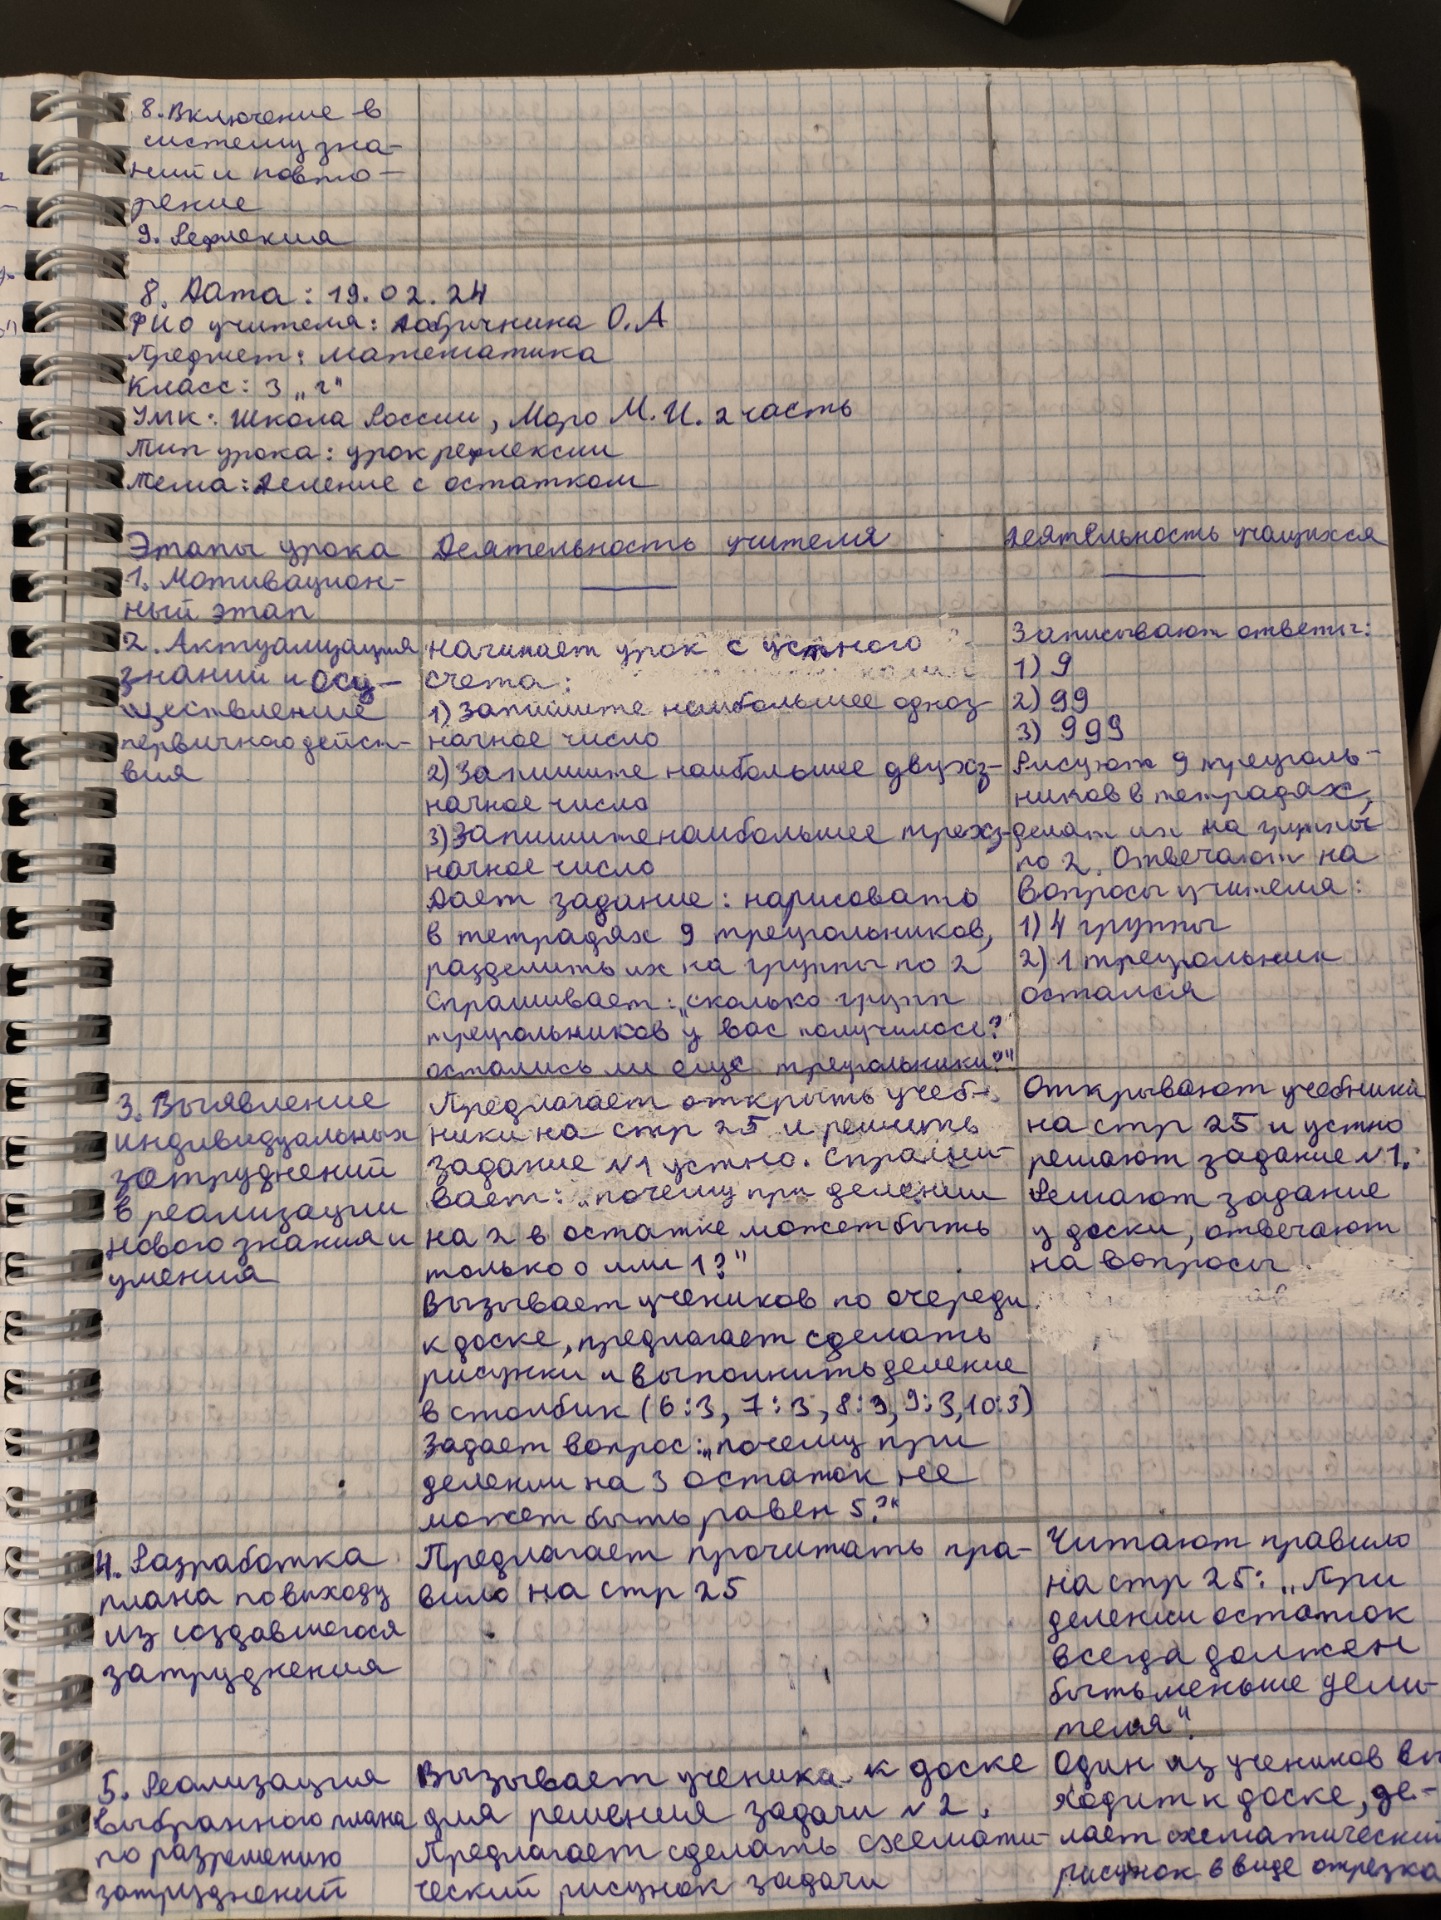 8. Включение в
систему зна-
ний и повто-
рение
9. Рефлекия
8. Дата: 19.02.24
ФИО учителя: О.А
Предмет: математика
Класс: 3 „г"
УМК: Школа России, Моро М.И. 2 часть
Тип урока: урок рефлексии
Тема: Деление с остатком
Этапы урока
Деятельность учителя
Деятельность учащихся
1. Мотивацион-
ный этап
2. Актуализация
знаний и осу-
ществление
первичного дейст-
вия
начинает урок с устного
счета:
1) Запишите наибольшее одноз-
начное число
2) Запишите наибольшее двухз-
начное число
3) Запишите наибольшее трехз-
начное число
Дает задание: нарисовать
в тетрадях 9 треугольников,
разделить их на группы по 2
Спрашивает: „сколько групп
треугольников у вас получилось?
остались ли еще треугольники?"
Записывают ответы:
1) 9
2) 99
3) 999
Рисуют 9 треуголь-
ников в тетрадях,
делят их на группы
по 2. Отвечают на
вопросы учителя:
1) 4 группы
2) 1 треугольник
остался
3. Выявление
индивидуальных
затруднений
в реализации
нового знания и
умения
Предлагает открыть учеб-
ники на стр 25 и решить
задание №1 устно. Спраши-
вает: „почему при делении
на 2 в остатке может быть
только 0 или 1?"
Вызывает учеников по очереди
к доске, предлагает сделать
рисунки и выполнить деление
в столбик (6:3, 7:3, 8:3, 9:3, 10:3)
Задает вопрос: „почему при
делении на 3 остаток не
может быть равен 5?"
Открывают учебники
на стр 25 и устно
решают задание №1.
Решают задание
у доски, отвечают
на вопросы
4. Разработка
плана по выходу
из создавшегося
затруднения
Предлагает прочитать пра-
вило на стр 25
Читают правило
на стр 25: „При
делении остаток
всегда должен
быть меньше дели-
теля".
5. Реализация
выбранного плана
по разрешению
затруднений
Вызывает ученика к доске
для решения задачи №2.
Предлагает сделать схемати-
ческий рисунок задачи
Один из учеников вы
ходит к доске, де-
лает схематический
рисунок в виде отрезка